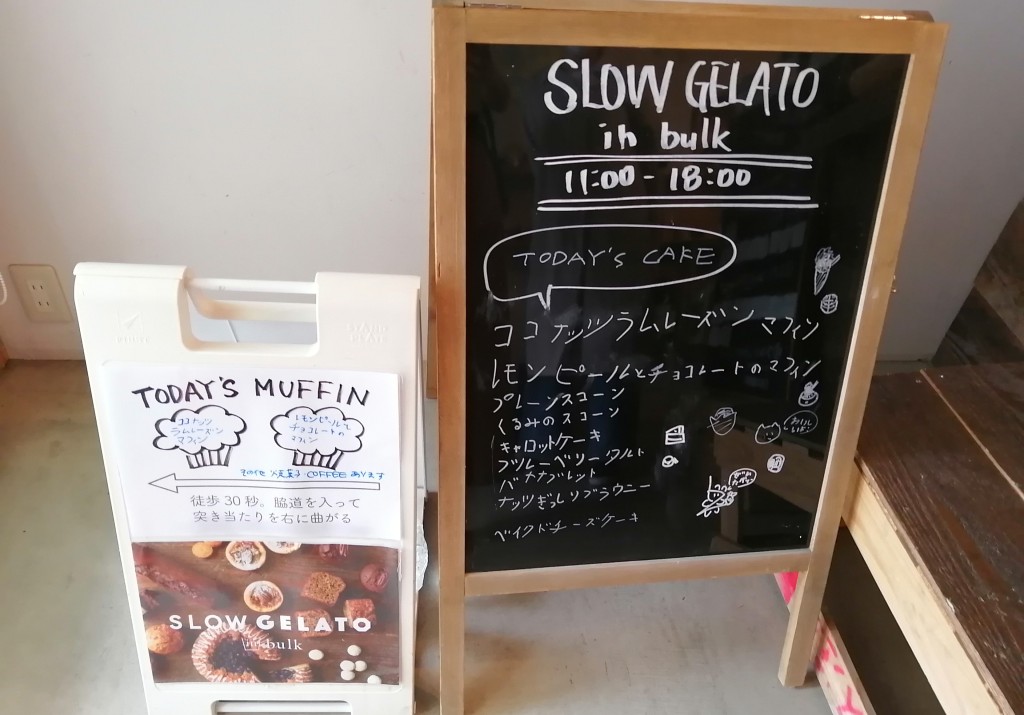 SLOW GELATO
in bulk
11:00 - 18:00
TODAY'S CAFE
ココナッツラムレーズンマフィン
レモンピールとチョコレートのマフィン
プレーンスコーン
くるみのスコーン
キャロットケーキ
ブルーベリータルト
バナナブレット
ナッツぎっしりブラウニー
ベイクドチーズケーキ
おいしいよ!
TODAY'S MUFFIN
ココナッツ
ラムレーズン
マフィン
レモンピールと
チョコレートの
マフィン
その他 焼菓子 COFFEE あります
徒歩30秒。脇道を入って
突き当たりを右に曲がる
SLOW GELATO
in bulk